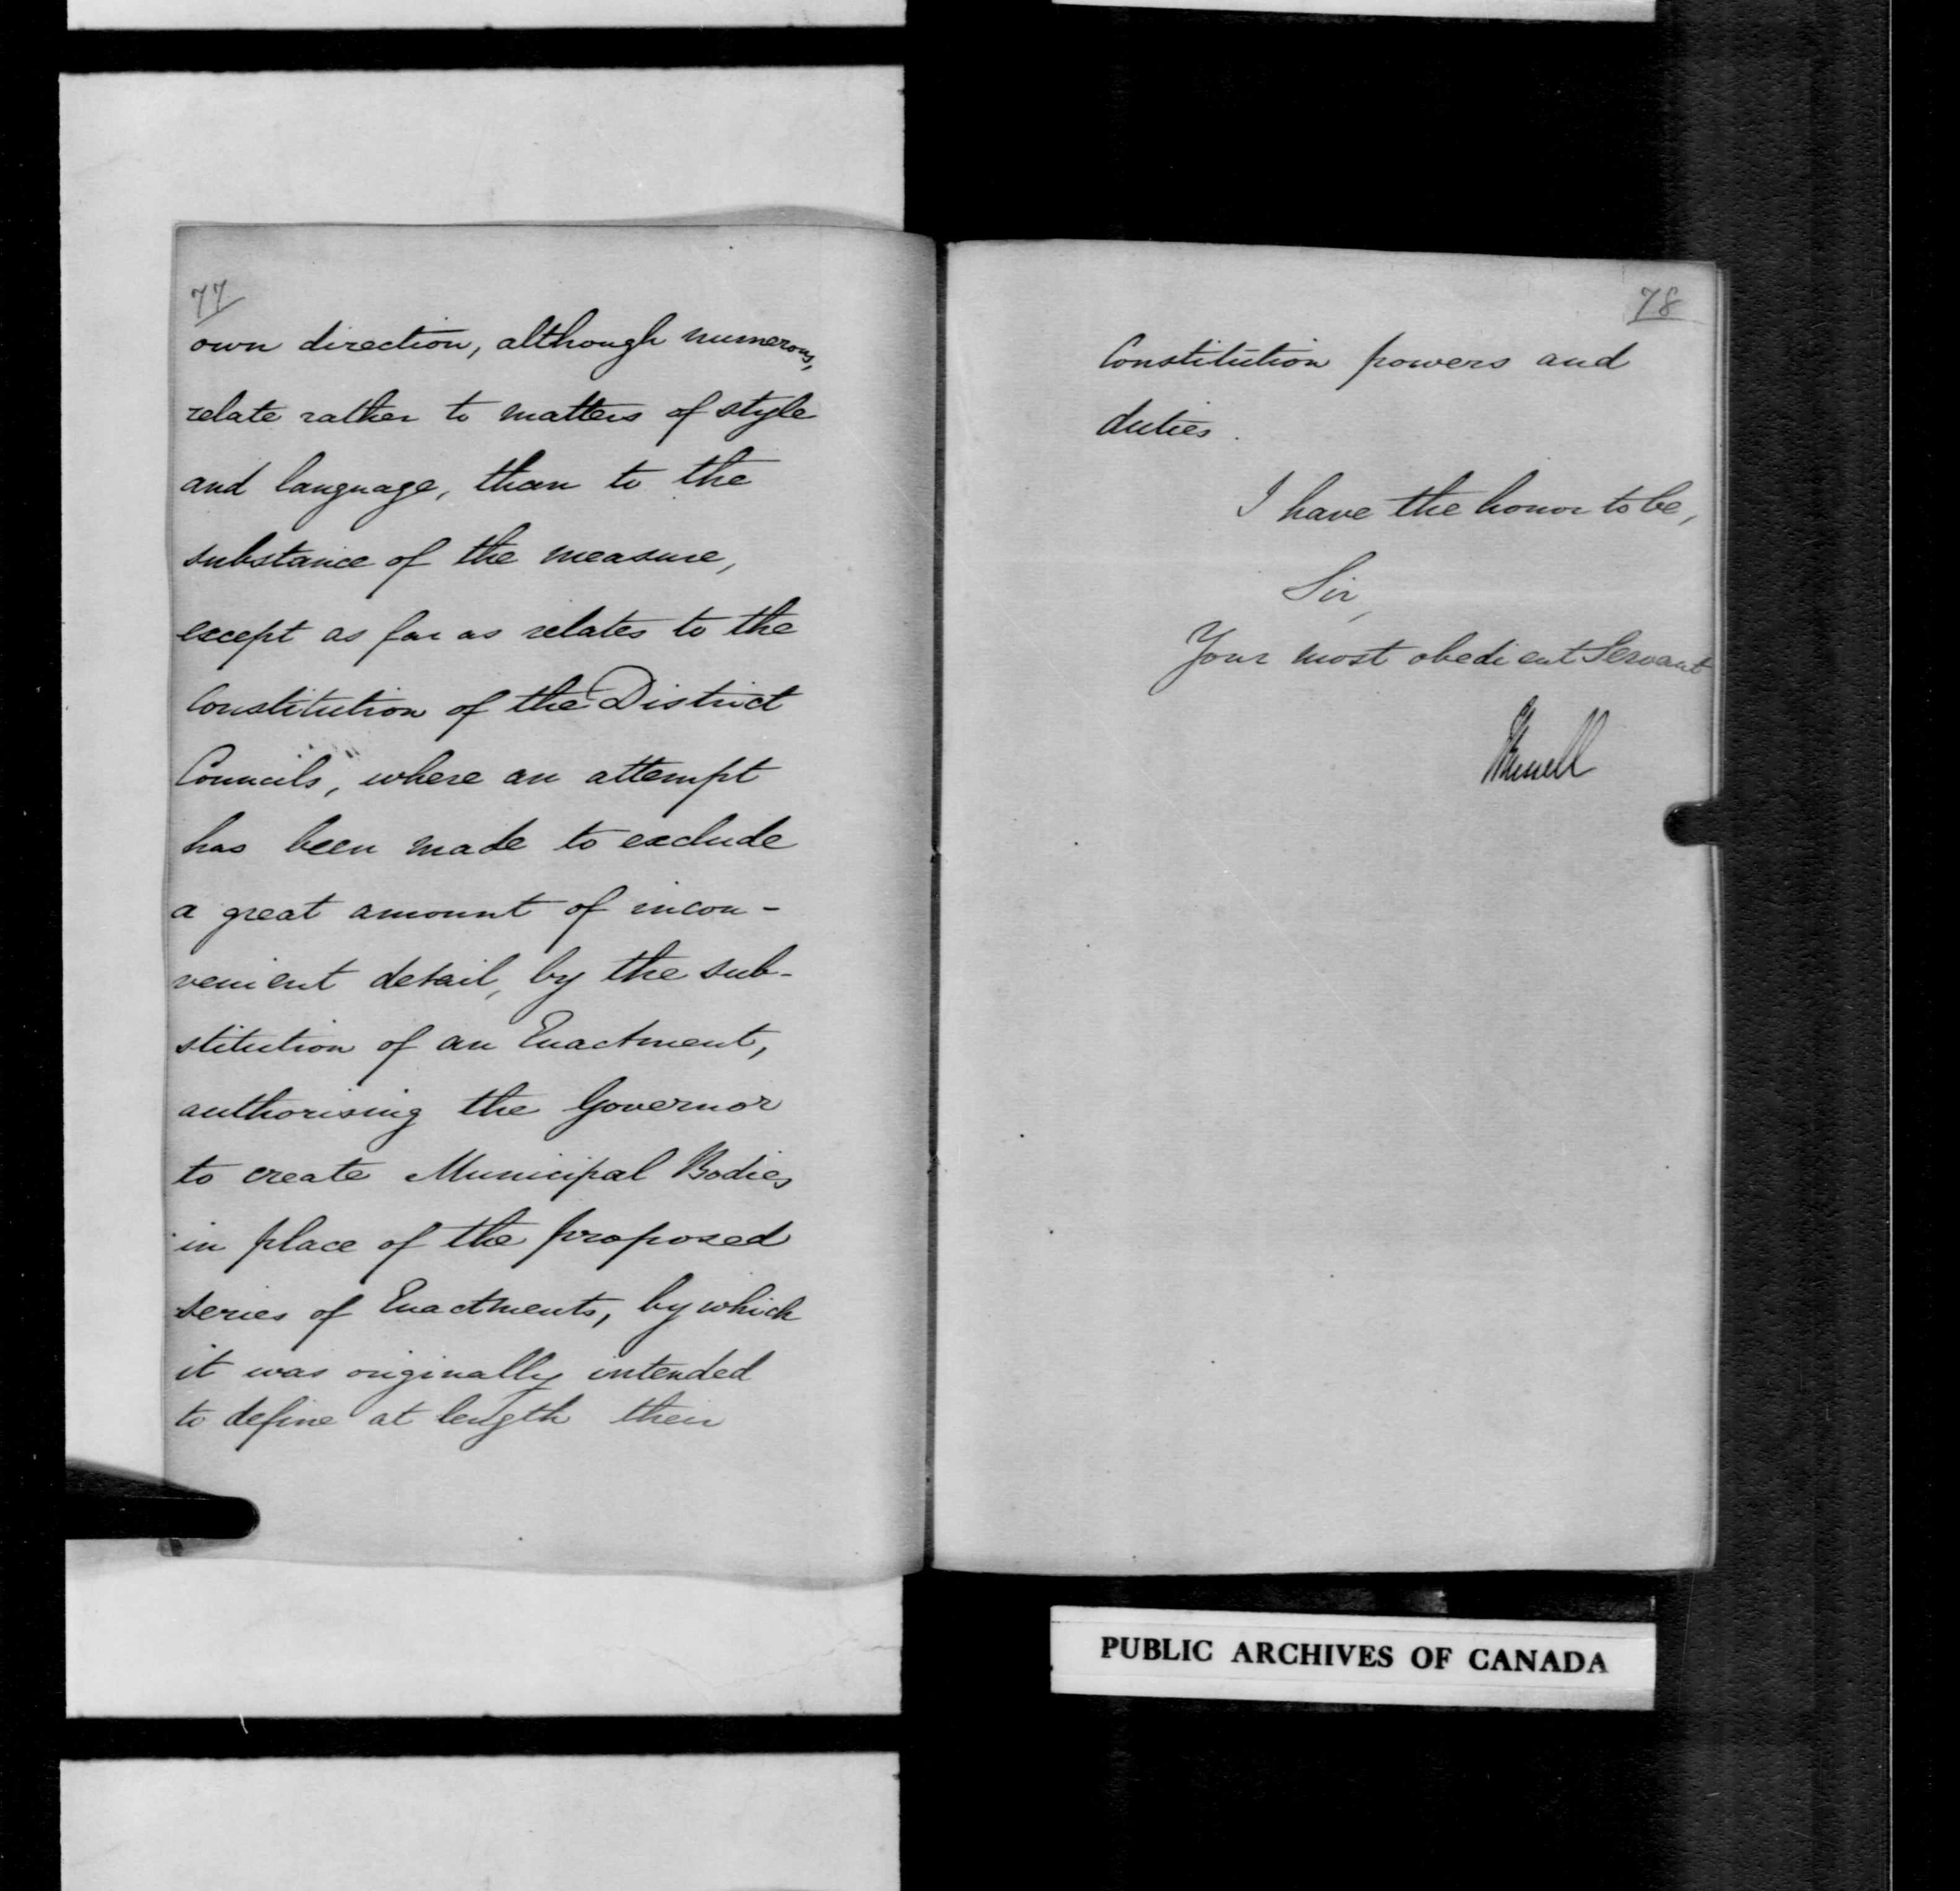 77
own direction, although numerous,
relate rather to matters of style
and language, than to the
substance of the measure,
except as far as relates to the
Constitution of the District
Councils, where an attempt
has been made to exclude
a great amount of incon-
venient detail, by the sub-
stitution of an Enactment,
authorising the Governor
to create Municipal Bodies
in place of the proposed
series of Enactments, by which
it was originally intended
to define at length their
78
Constitution powers and
duties.
I have the honor to be,
Sir,
Your most obedient Servant
JRussell
PUBLIC ARCHIVES OF CANADA